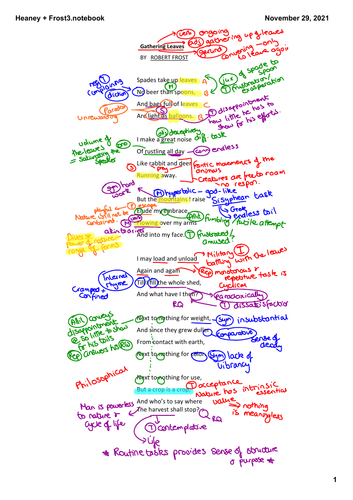 Heaney + Frost3.notebook
November 29, 2021
verb
ongoing
adj
gathering up of leaves
Gathering Leaves
gerund
conveying - only
to leave again
BY ROBERT FROST
use of spade to
spoon
frustration /
exasperation
Spades take up leaves A
No better than spoons, B
diction
And bags full of leaves C
Paradox
Unrewarding
Are light as balloons. B
disappointment
how little he has to
show for his efforts.
volume of
the leaves
I make a great noise
task
Of rustling all day
endless
Like rabbit and deer
frantic movements of the
animals
Running away.
Creatures are free to roam
no respon.
hard
work
hyperbolic - god-like
But the mountains I raise
Sisyphean task
playful
escape
Nature still not be
contained
Elude my embrace,
Greek
endless toil
Flowing over my arms
fumbling / futile attempt
And into my face.
frustrated /
amused?
power & nature -
range of forms
I may load and unload
Military
battling with the leaves
Again and again
Rep
monotonous &
repetitive task is
cyclical
Internal
rhyme
Cramped &
confined
Till I fill the whole shed,
And what have I then?
paradoxically
RQ
dissatisfaction
conveys
disappointment
@ so little to show
for his toils
Next to nothing for weight,
Sym
insubstantial
And since they grew duller
Comparative
sense of
decay
From contact with earth,
Rep
answers his RQ
Next to nothing for color.
Sym
lack of
vibrancy
Philosophical
Next to nothing for use,
But a crop is a crop,
acceptance
Nature has intrinsic
value
essential
And who's to say where
nothing
is meaningless
Man is powerless
to nature &
cycle of life
The harvest shall stop?
RQ
Life
contemplative
* Routine tasks provides sense of structure
& purpose *
1